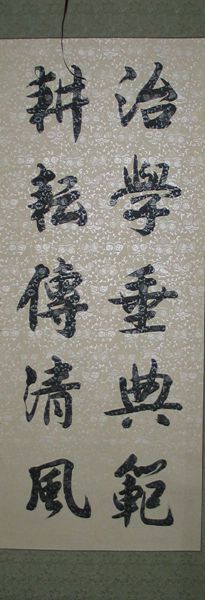 治學垂典範
耕耘傳清風